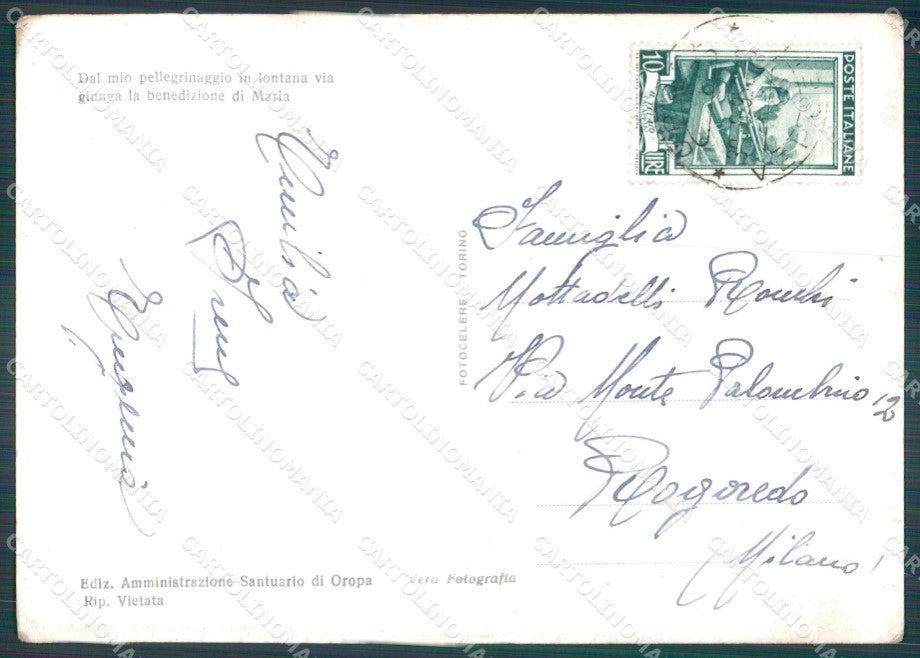 Dal mio pellegrinaggio in lontana via
giunga la benedizione di Maria
Emilia
Eugenia
10
LIRE
POSTE ITALIANE
FOTOCELERE - TORINO
Famiglia
Mottadelli Ronchi
Via Monte Palombino 12
Rogoredo
Milano
Ediz. Amministrazione Santuario di Oropa
Rip. Vietata
Vera Fotografia
CARTOLINOMANIA